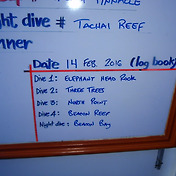 PINNACLE
ght dive # TACHAI REEF
nner
Date 14 FEB. 2016 (log book)
Dive 1: ELEPHANT HEAD ROCK
Dive 2: THREE TREES
Dive 3: NORTH POINT
Dive 4: BEACON REEF
Night dive: BEACON BAY